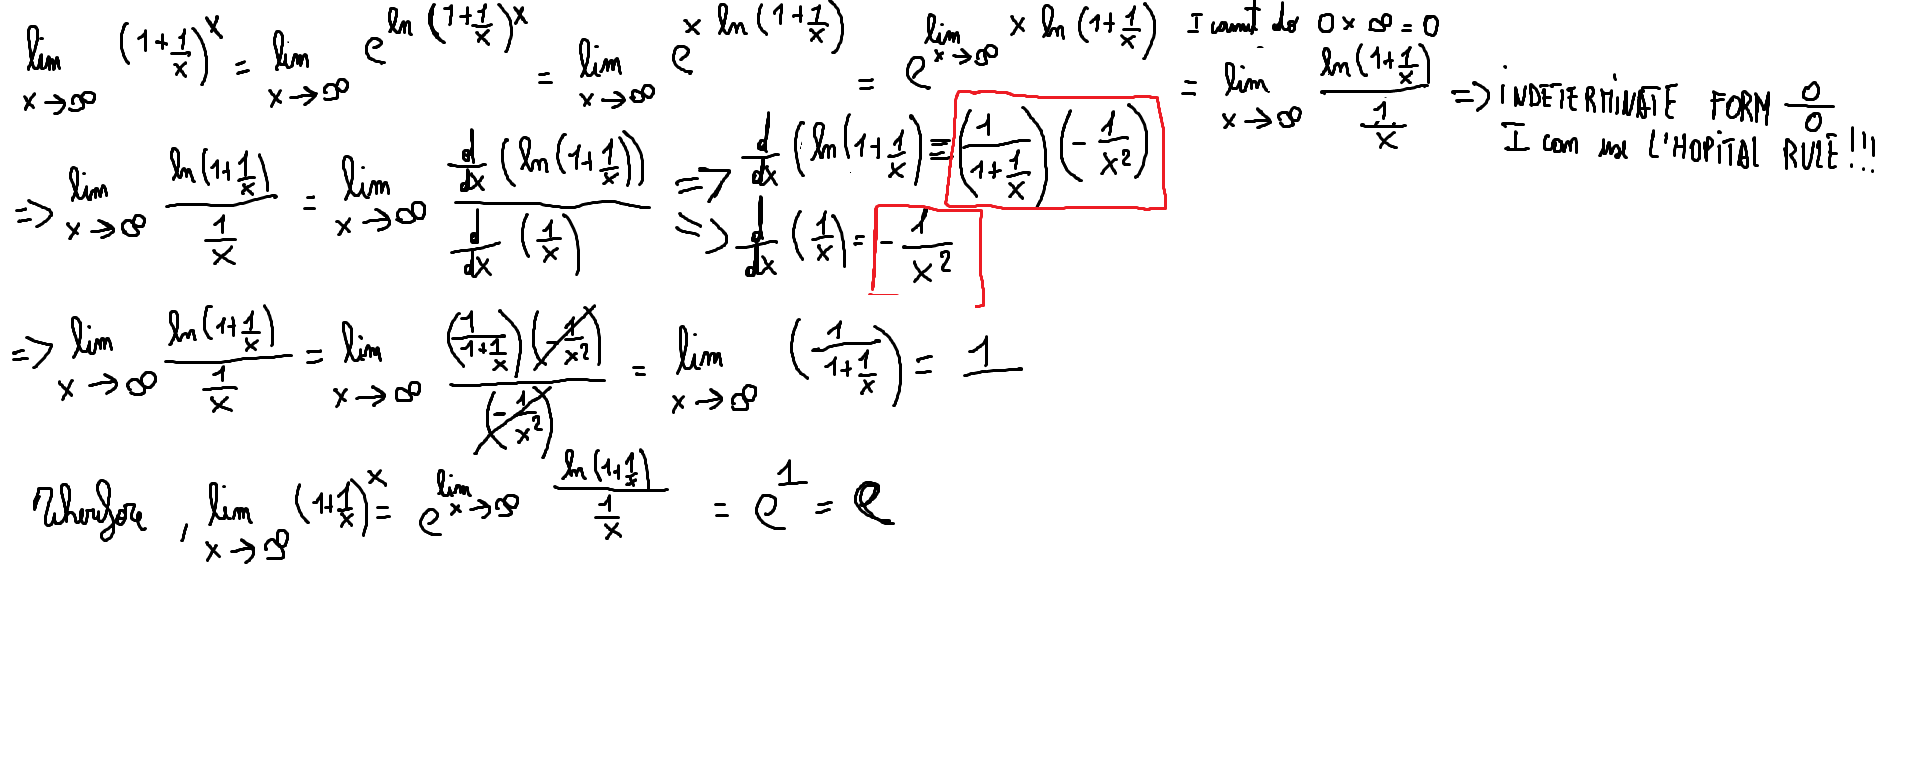 lim x→∞ (1+1/x)^x = lim x→∞ e^(ln(1+1/x)^x) = lim x→∞ e^(x ln(1+1/x)) = e^(lim x→∞ x ln(1+1/x)) I cannot do 0 × ∞ = 0
= lim x→∞ ln(1+1/x) / (1/x) => INDETERMINATE FORM 0/0
I can use L'HOPITAL RULE!!!
=> lim x→∞ ln(1+1/x) / (1/x) = lim x→∞ d/dx (ln(1+1/x)) / d/dx (1/x) => d/dx (ln(1+1/x) = (1/(1+1/x)) (-1/x²)
=> d/dx (1/x) = -1/x²
=> lim x→∞ ln(1+1/x) / (1/x) = lim x→∞ (1/(1+1/x)) (-1/x²) / (-1/x²) = lim x→∞ (1/(1+1/x)) = 1
Therefore, lim x→∞ (1+1/x)^x = e^(lim x→∞ ln(1+1/x) / (1/x)) = e^1 = e